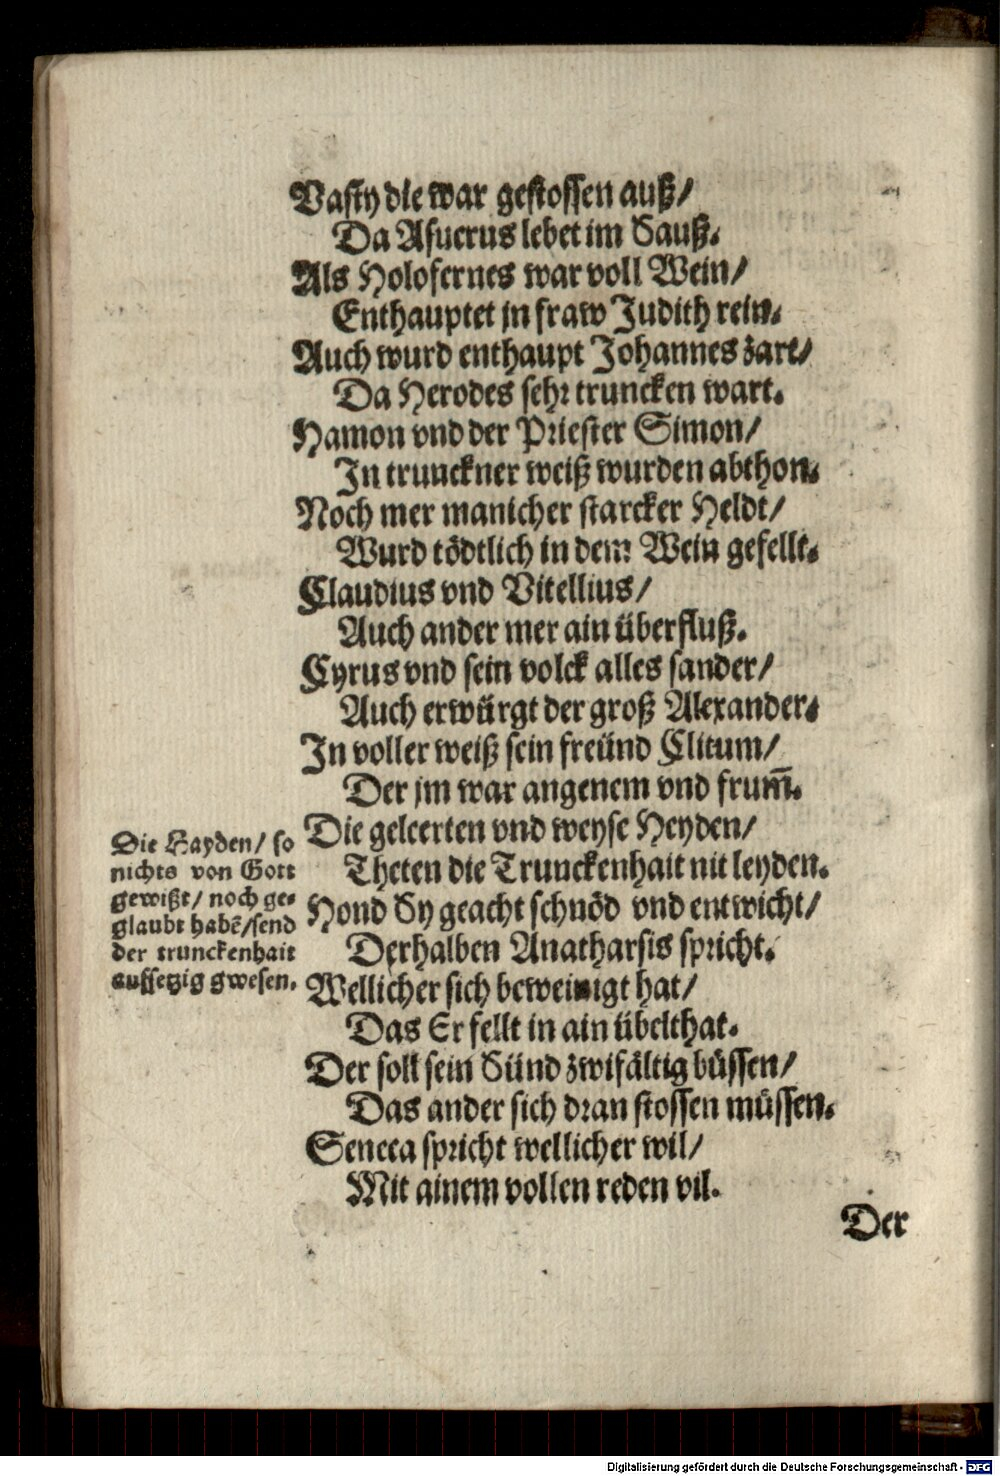 Vasty die war gestossen auß/
Da Asuerus lebet im Sauß.
Als Holofernes war voll Wein/
Enthauptet jn fraw Judith rein.
Auch wurd enthaupt Johannes zart/
Da Herodes sehr truncken wart.
Hamon vnd der Priester Simon/
In trunckner weiß wurden abthon.
Noch mer manicher starcker Heldt/
Wurd tödtlich in dem Wein gefellt.
Claudius vnd Vitellius/
Auch ander mer ain überfluß.
Cyrus vnd sein volck alles sander/
Auch erwürgt der groß Alexander.
In voller weiß sein freünd Clitum/
Der jm war angenem vnd frum̄.
Die geleerten vnd weyse Heyden/
Theten die Trunckenhait nit leyden.
Hond Sy geacht schnöd vnd entwicht/
Derhalben Anatharsis spricht.
Wellicher sich beweinigt hat/
Das Er fellt in ain übelthat.
Der soll sein Sünd zwifältig büssen/
Das ander sich dran stossen müssen.
Seneca spricht wellicher wil/
Mit ainem vollen reden vil.
Der
Die Hayden/ so
nichts von Gott
gewißt/ noch ge-
glaubt habē/send
der trunckenhait
auffsetzig gwesen.
Digitalisierung gefördert durch die Deutsche Forschungsgemeinschaft - DFG